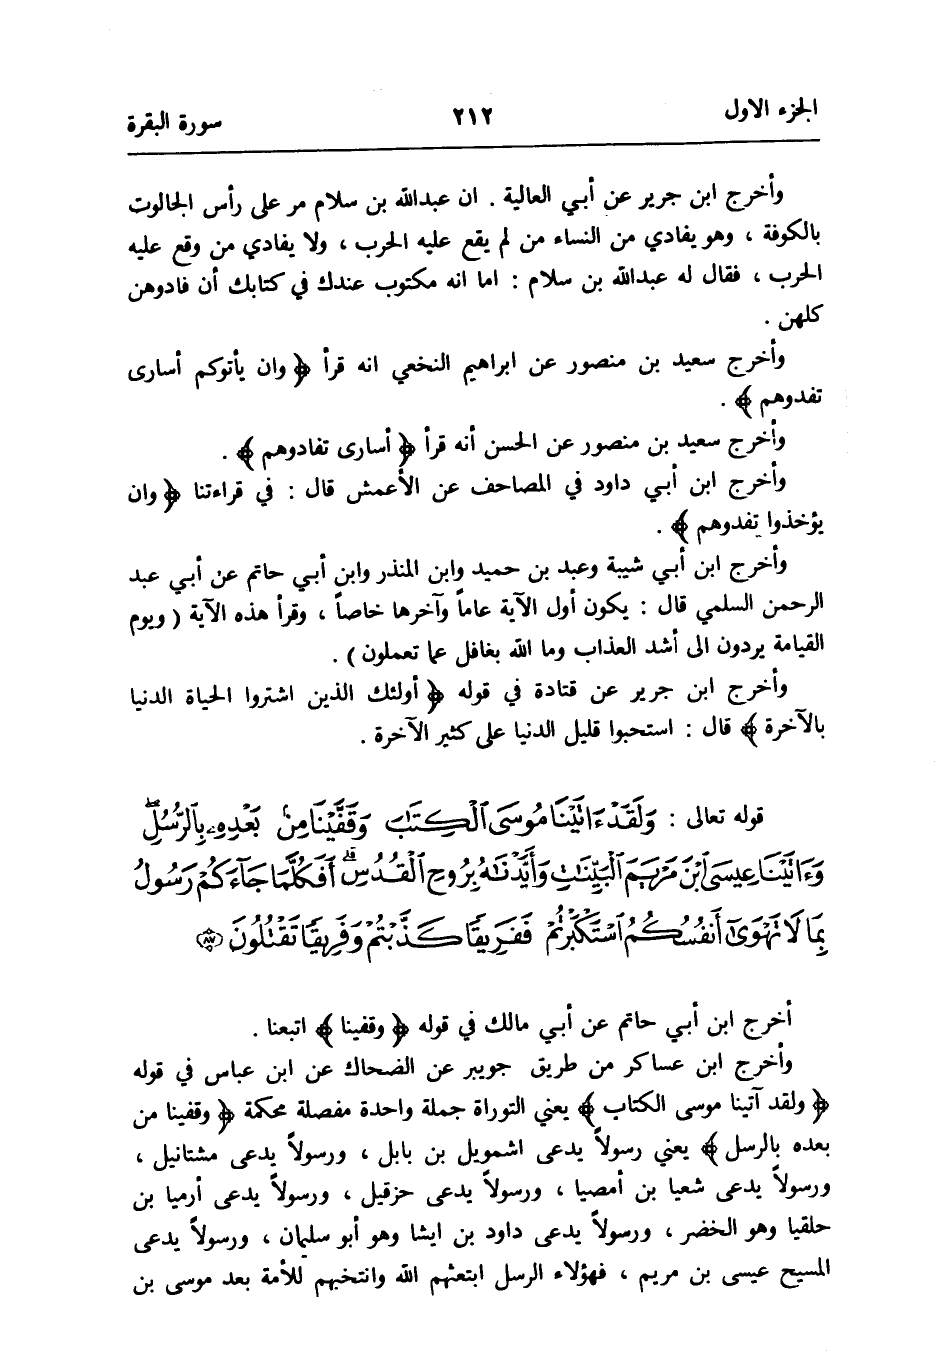 الجزء الاول
٢١٢
سورة البقرة
وأخرج ابن جرير عن أبي العالية . ان عبدالله بن سلام مر على رأس الجالوت
بالكوفة ، وهو يفادي من النساء من لم يقع عليه الحرب ، ولا يفادي من وقع عليه
الحرب ، فقال له عبدالله بن سلام : اما انه مكتوب عندك في كتابك أن فادوهن
كلهن .
وأخرج سعيد بن منصور عن ابراهيم النخعي انه قرأ ﴿ وان يأتوكم أسارى
تفدوهم ﴾ .
وأخرج سعيد بن منصور عن الحسن أنه قرأ ﴿ أسارى تفادوهم ﴾ .
وأخرج ابن أبي داود في المصاحف عن الأعمش قال : في قراءتنا ﴿ وان
يؤخذوا تفدوهم ﴾ .
وأخرج ابن أبي شيبة وعبد بن حميد وابن المنذر وابن أبي حاتم عن أبي عبد
الرحمن السلمي قال : يكون أول الآية عاماً وآخرها خاصاً ، وقرأ هذه الآية ( ويوم
القيامة يردون الى أشد العذاب وما الله بغافل عما تعملون ) .
وأخرج ابن جرير عن قتادة في قوله ﴿ أولئك الذين اشتروا الحياة الدنيا
بالآخرة ﴾ قال : استحبوا قليل الدنيا على كثير الآخرة .
قوله تعالى : وَلَقَدْ ءَاتَيْنَا مُوسَى ٱلْكِتَٰبَ وَقَفَّيْنَا مِنۢ بَعْدِهِۦ بِٱلرُّسُلِۖ
وَءَاتَيْنَا عِيسَى ٱبْنَ مَرْيَمَ ٱلْبَيِّنَٰتِ وَأَيَّدْنَٰهُ بِرُوحِ ٱلْقُدُسِۗ أَفَكُلَّمَا جَآءَكُمْ رَسُولٌۢ
بِمَا لَا تَهْوَىٰٓ أَنفُسُكُمُ ٱسْتَكْبَرْتُمْ فَفَرِيقًا كَذَّبْتُمْ وَفَرِيقًا تَقْتُلُونَ ۝٨٧
أخرج ابن أبي حاتم عن أبي مالك في قوله ﴿ وقفينا ﴾ اتبعنا .
وأخرج ابن عساكر من طريق جويبر عن الضحاك عن ابن عباس في قوله
﴿ ولقد آتينا موسى الكتاب ﴾ يعني التوراة جملة واحدة مفصلة محكمة ﴿ وقفينا من
بعده بالرسل ﴾ يعني رسولاً يدعى اشمويل بن بابل ، ورسولاً يدعى مشتانيل ،
ورسولاً يدعى شعيا بن أمصيا ، ورسولاً يدعى حزقيل ، ورسولاً يدعى أرميا بن
حلقيا وهو الخضر ، ورسولاً يدعى داود بن ايشا وهو أبو سليمان ، ورسولاً يدعى
المسيح عيسى بن مريم ، فهؤلاء الرسل ابتعثهم الله وانتخبهم للأمة بعد موسى بن